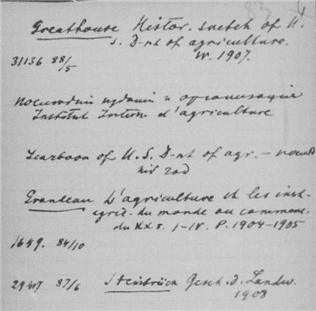 Greathouse Histor. sketch of U.
S. D-nt of agriculture.
31156 88/5 W. 1907.
Последнiй изданiй и организацiя
Institut Intern. d'agriculture
Yearbook of U.S. D-nt of agr. –
год
Grandeau L'agriculture et les inst-
agric. du monde au commenc.
du XX s. I–IV. P. 1904–1905
1649. 84/10
87/6 Steinbrück Gesch. d. Landw.
1908